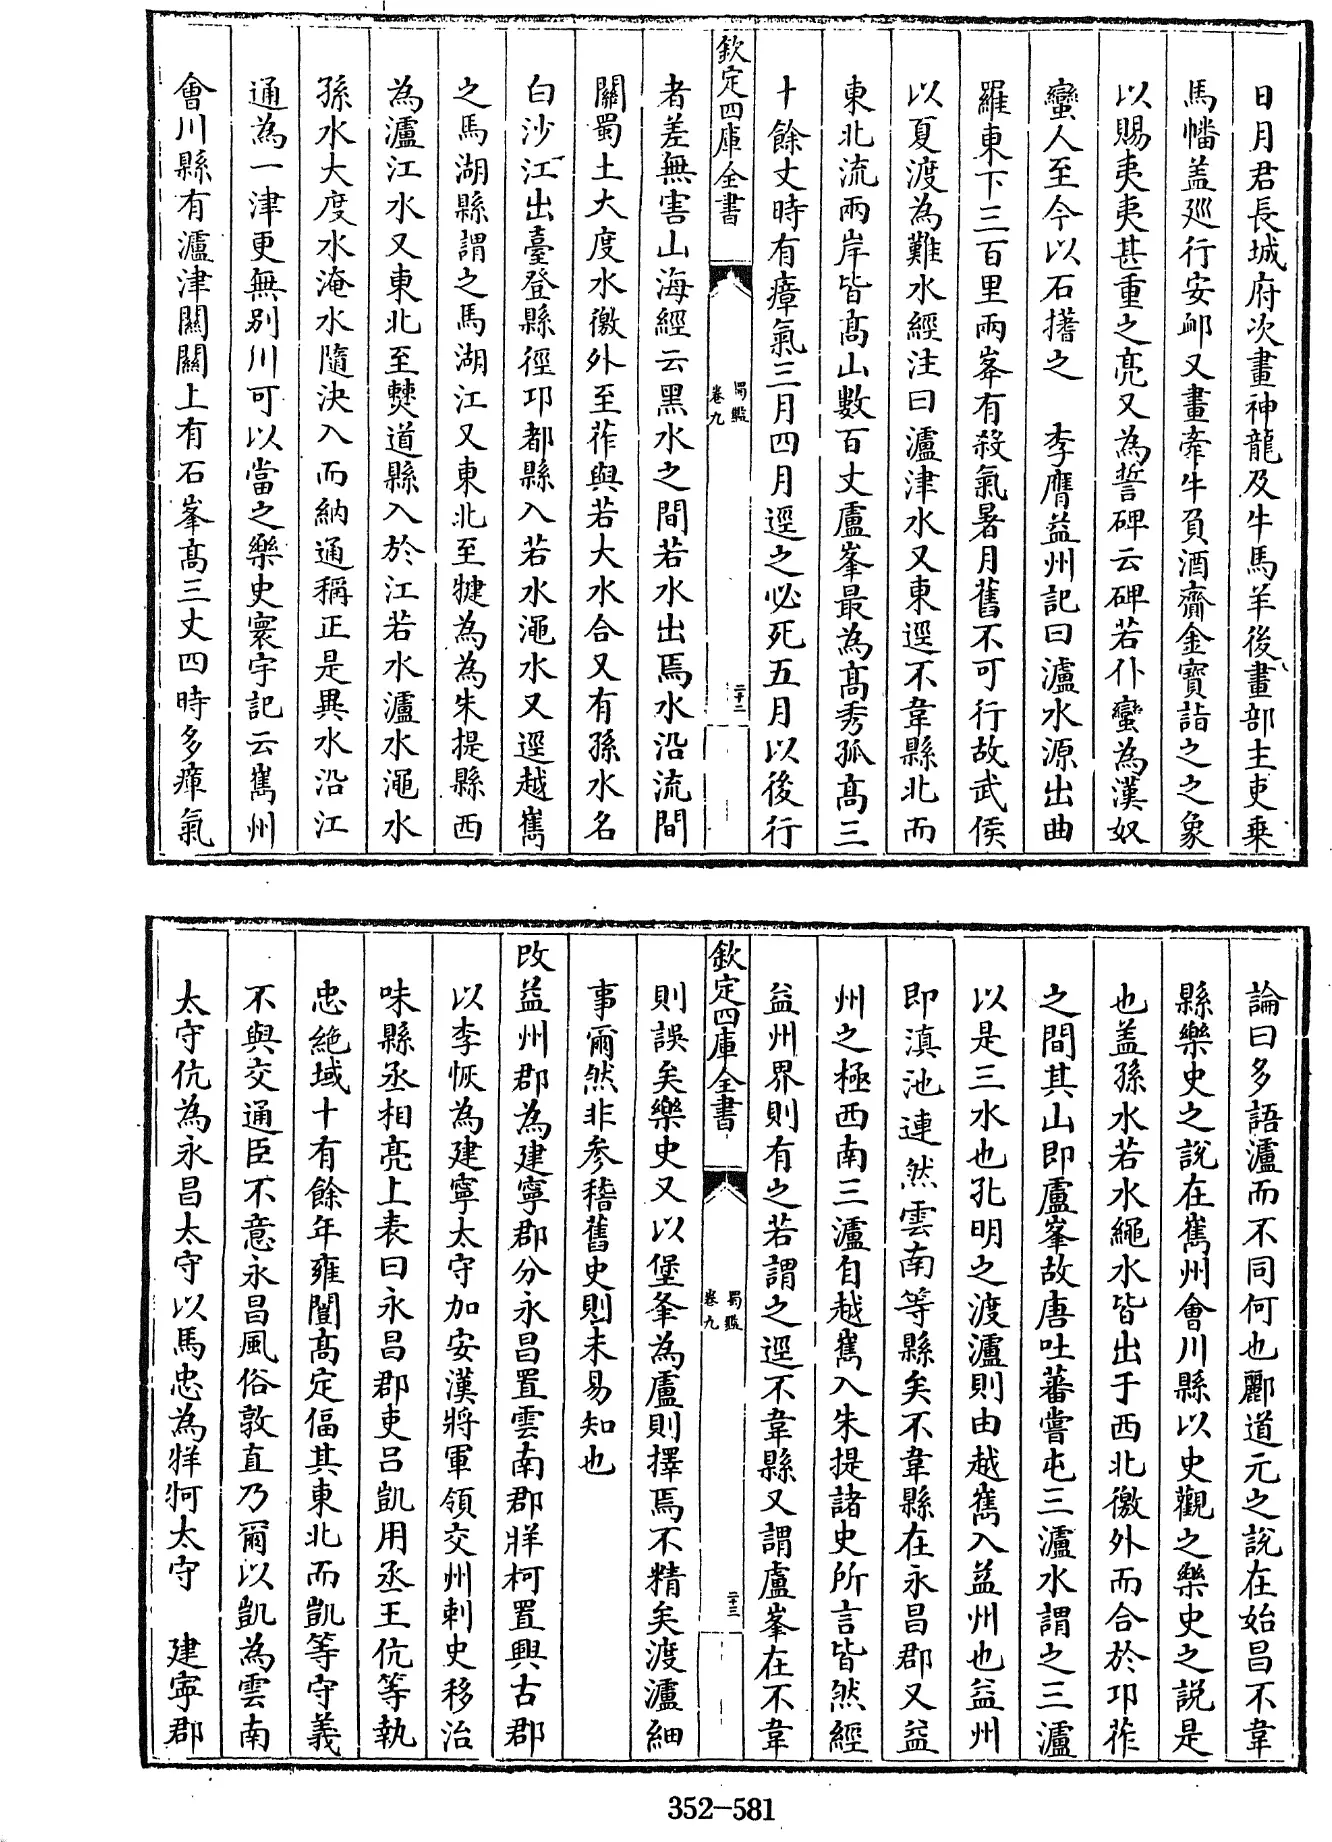 日月君長城府次畫神龍及牛馬羊後畫部主吏乗
馬幡盖廵行安䘏又畫牽牛負酒齎金寳詣之之象
以賜夷夷甚重之亮又為誓碑云碑若仆蠻為漢奴
蠻人至今以石撦之　李膺益州記曰瀘水源出曲
羅東下三百里兩峯有殺氣暑月舊不可行故武侯
以夏渡為難水經注曰瀘津水又東逕不韋縣北而
東北流兩岸皆髙山數百丈廬峯最為髙秀孤髙三
十餘丈時有瘴氣三月四月逕之必死五月以後行
欽定四庫全書
蜀鑑
卷九
二十二
者差無害山海經云黑水之間若水出焉水沿流間
關蜀土大度水徼外至莋與若大水合又有孫水名
白沙江出臺登縣徑卭都縣入若水澠水又逕越嶲
之馬湖縣謂之馬湖江又東北至犍為為朱提縣西
為瀘江水又東北至僰道縣入於江若水瀘水澠水
孫水大度水淹水隨決入而納通稱正是異水沿江
通為一津更無别川可以當之樂史寰宇記云嶲州
會川縣有瀘津關關上有石峯髙三丈四時多瘴氣
論曰多語瀘而不同何也酈道元之說在始昌不韋
縣樂史之說在嶲州會川縣以史觀之樂史之說是
也盖孫水若水繩水皆出于西北徼外而合於卭莋
之間其山即廬峯故唐吐蕃嘗屯三瀘水謂之三瀘
以是三水也孔明之渡瀘則由越嶲入益州也益州
即滇池連然雲南等縣矣不韋縣在永昌郡又益
州之極西南三瀘自越嶲入朱提諸史所言皆然經
益州界則有之若謂之逕不韋縣又謂廬峯在不韋
欽定四庫全書
蜀鑑
卷九
二十三
則誤矣樂史又以堡峯為廬則擇焉不精矣渡瀘細
事爾然非參稽舊史則未易知也
改益州郡為建寧郡分永昌置雲南郡牂柯置興古郡
以李恢為建寧太守加安漢將軍領交州刺史移治
味縣丞相亮上表曰永昌郡吏吕凱用丞王伉等執
忠絶域十有餘年雍闓髙定偪其東北而凱等守義
不與交通臣不意永昌風俗敦直乃爾以凱為雲南
太守伉為永昌太守以馬忠為牂牁太守　建寧郡
352-581